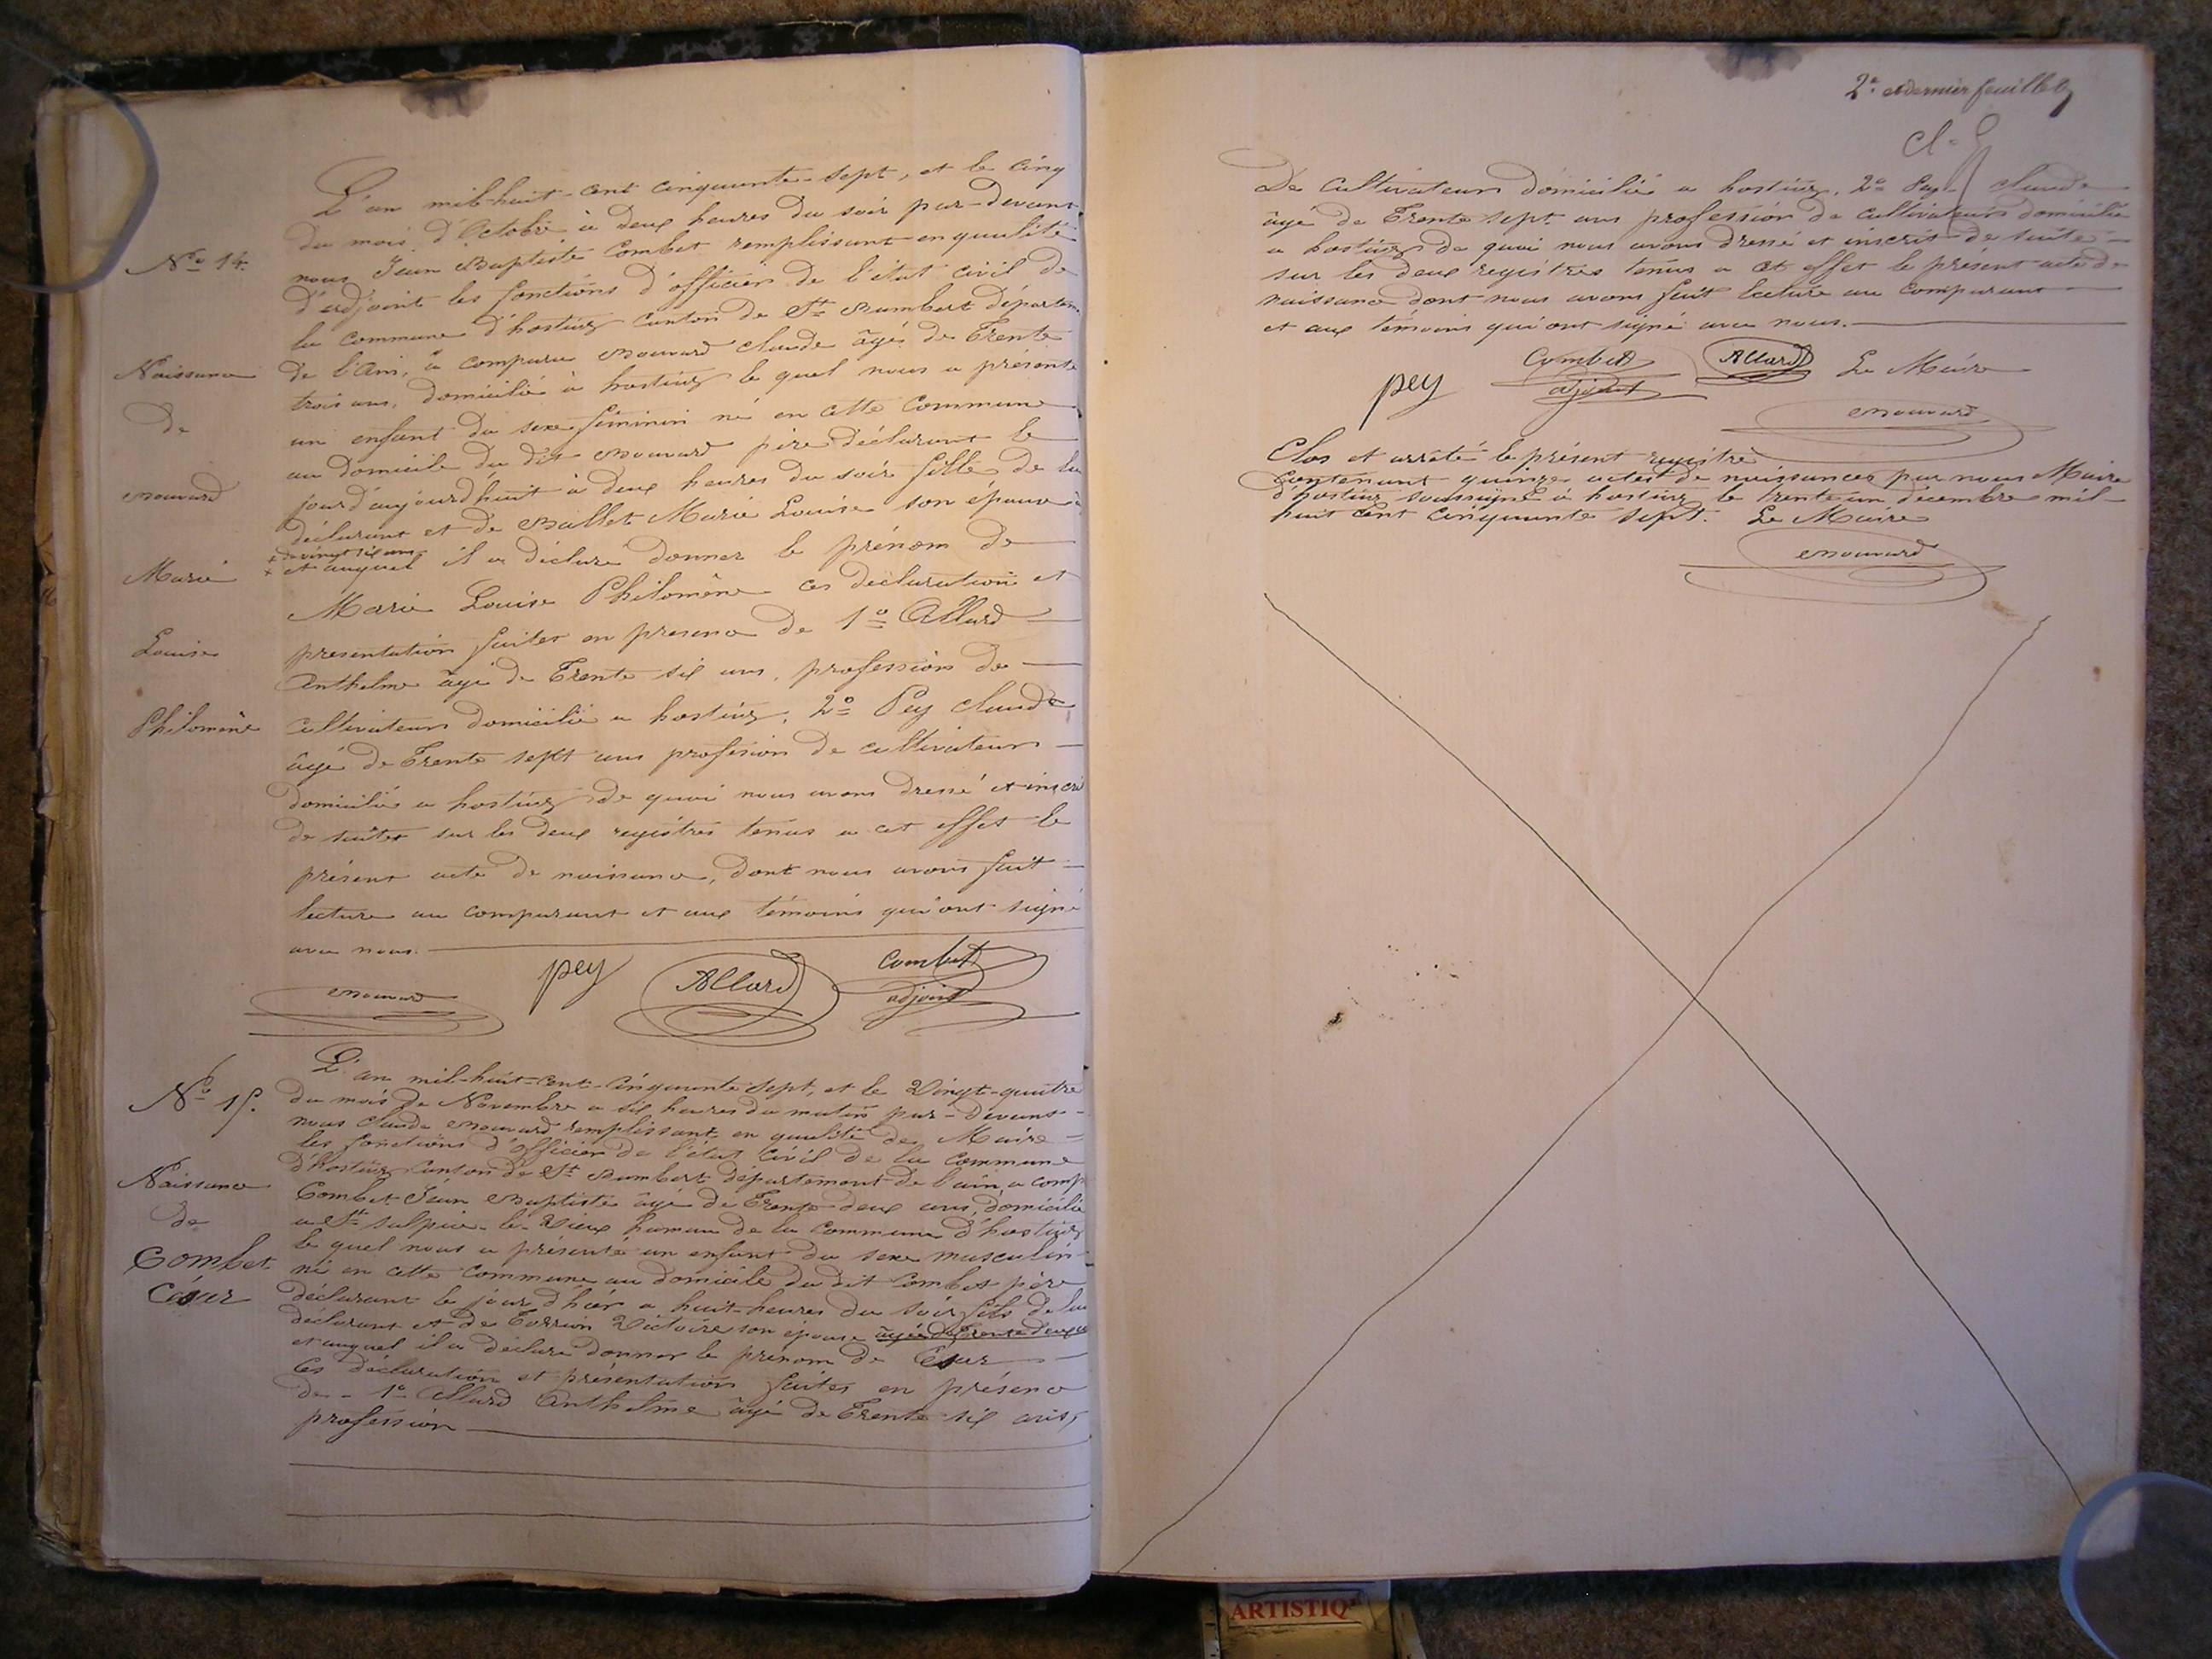 L'an mil-huit-cent cinquante-sept, et le cinq
du mois d'Octobre à deux heures du soir par-devant
nous Jean Baptiste Combet remplissant en qualité
d'adjoint les fonctions d'officier de l'état civil de
la commune d'hostiaz canton de St Rambert départem.
de l'Ain, a comparu Mouward claude âgé de Trente
trois ans, domicilié à hostiaz le quel nous a présenté
un enfant du sexe féminin né en cette commune
au domicile du dit père déclarant le
jour d'aujourd'huit à deux heures du soir fille de lui
déclarant et de Ballet Marie Louise son épouse
de vingt six ans
et auquel il a déclaré donner le prénom de
Marie Louise Philomène ces déclaration et
présentation faites en présence de 1º Allard
Anthelme âgé de Trente six ans, profession de
cultivateurs domicilié a hostiaz, 2º Pey claude
âgé de Trente sept ans profession de cultivateurs
domicilié a hostiaz de quoi nous avons dressé et inscri
de suites sur les deux registres tenus a cet effet le
présent acte de naissance, dont nous avons fait
lecture au comparant et aux témoins qui ont signé
avec nous.
pey Allard Combet
adjoint
Nº 14.
Naissance
de
Marie
Louise
Philomène
L'an mil-huit-cent-cinquante sept, et le Vingt-quatre
du mois de Novembre a six heures du matin par-devant
nous claude remplissant en qualité de Maire
les fonctions d'officier de l'état civil de la commune
d'hostiaz canton de St Rambert département de l'ain, a comp
Combet Jean Baptiste âgé de Trente deux ans, domicilié
a St sulpice-le-Vieux hameau de la commune d'hostiaz
le quel nous a présenté un enfant du sexe masculin
né en cette commune au domicile du dit Combet père
déclarant le jour d'hier a huit-heures du soir fils de lui
déclarant et de Victoire son épouse âgée de Trente deux
et auquel il a déclaré donner le prénom de César
Ces déclaration et présentation faites en présence
de - 1º Allard Anthelme âgé de Trente six ans,
profession
Nº 15.
Naissance
de
Combet
César
2e et dernier feuillet
De Cultivateurs domicilié a hostiaz, 2º Pey claude
âgé de Trente sept ans profession de cultivateurs domicilié
a hostiaz de quoi nous avons dressé et inscrit de suite
sur les deux registres tenus a cet effet le présent acte de
naissance dont nous avons fait lecture au comparant
et aux témoins qui ont signé avec nous.
pey Combet Allard Le Maire
adjoint
Clos et arrêté le présent registre
Contenant quinze actes de naissances par nous Maire
d'hostiaz soussigné a hostiaz le trente un décembre mil
huit cent cinquante sept. Le Maire
ARTISTIQ